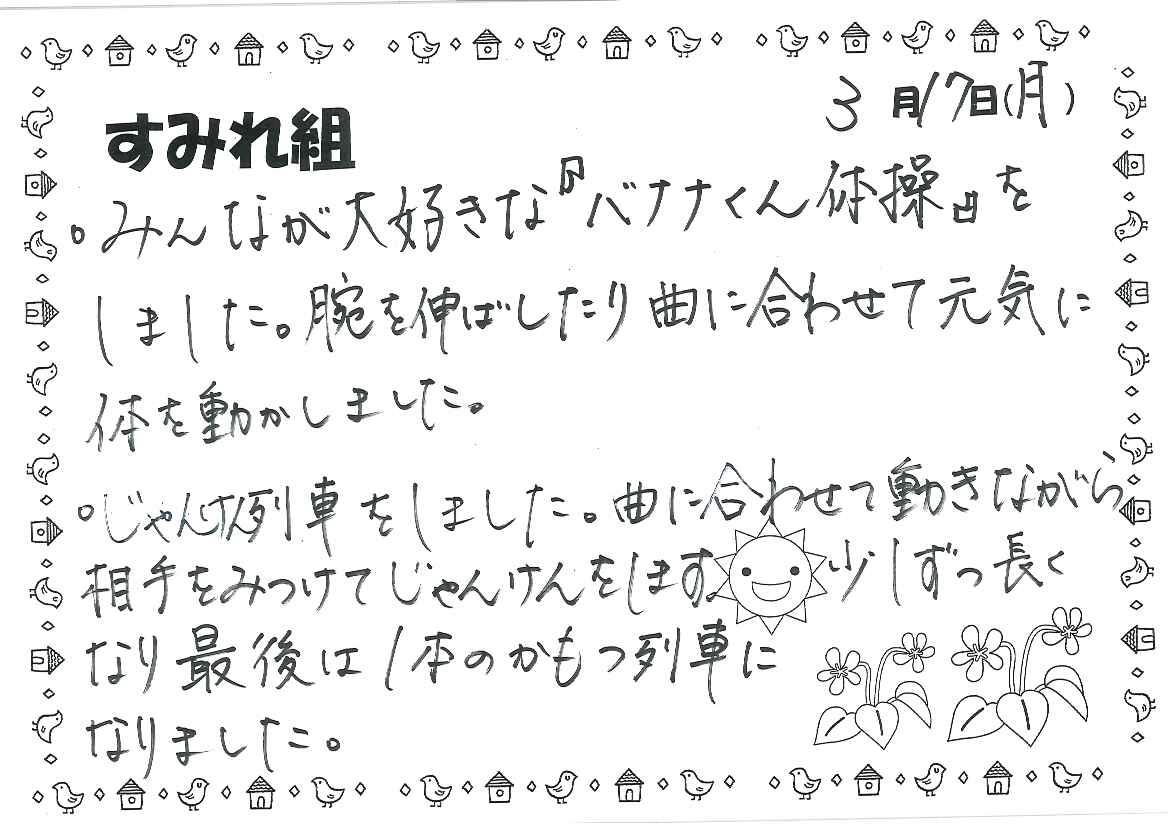 3月17日(月)
すみれ組
○みんなが大好きな『バナナくん体操』を
しました。腕を伸ばしたり曲に合わせて元気に
体を動かしました。
○じゃんけん列車をしました。曲に合わせて動きながら
相手をみつけてじゃんけんをします。少しずつ長く
なり最後は1本のかもつ列車に
なりました。